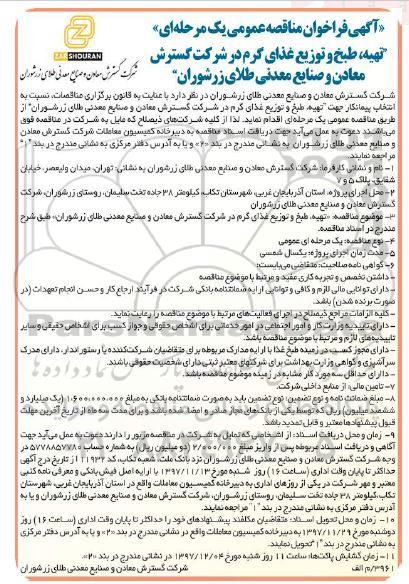 ZARSHOURAN
شرکت گسترش معادن و صنایع معدنی طلای زرشوران
«آگهی فراخوان مناقصه عمومی یک مرحله‌ای»
"تهیه، طبخ و توزیع غذای گرم در شرکت گسترش
معادن و صنایع معدنی طلای زرشوران"
شرکت گسترش معادن و صنایع معدنی طلای زرشوران در نظر دارد با عنایت به قانون برگزاری مناقصات، نسبت به
انتخاب پیمانکار جهت "تهیه، طبخ و توزیع غذای گرم در شرکت گسترش معادن و صنایع معدنی طلای زرشوران" از
طریق مناقصه عمومی یک مرحله‌ای اقدام نماید. لذا از کلیه شرکت‌های ذیصلاح که مایل به شرکت در مناقصه فوق
می‌باشند دعوت به عمل می‌آید جهت دریافت اسناد مناقصه به دبیرخانه کمیسیون معاملات شرکت گسترش معادن
و صنایع معدنی طلای زرشوران به نشانی مندرج در بند «۲» و یا به آدرس دفتر مرکزی به نشانی مندرج در بند "۱"
مراجعه نمایند
۱- نام و نشانی کارفرما: شرکت گسترش معادن و صنایع معدنی طلای زرشوران به نشانی: تهران، میدان ولیعصر، خیابان
شقایق، پلاک ۵ و ۷
۲- محل اجرای پروژه: استان آذربایجان غربی، شهرستان تکاب، کیلومتر ۳۸ جاده تخت سلیمان، روستای زرشوران، شرکت
گسترش معادن و صنایع معدنی طلای زرشوران
۳- موضوع مناقصه: "تهیه، طبخ و توزیع غذای گرم در شرکت گسترش معادن و صنایع معدنی طلای زرشوران" طبق شرح
مندرج در اسناد مناقصه.
۴- نوع مناقصه: یک مرحله ای عمومی
۵- مدت زمان اجرای پروژه: یکسال شمسی
۶- گواهی نامه صلاحیت: متقاضی می‌بایست:
- داشتن تخصص و تجربه کاری مفید و مرتبط با موضوع مناقصه
- دارای توانایی مالی لازم و کافی و توانایی ارایه ضمانتنامه بانکی شرکت در فرآیند ارجاع کار و حسن انجام تعهدات (در
صورت برنده شدن) باشد.
- کلیه الزامات مراجع ذیصلاح در اجرای فعالیت‌های مرتبط با موضوع مناقصه را رعایت نماید.
- دارای تاییدیه وزارت کار و امور اجتماعی در امور خدماتی برای اشخاص حقوقی و جواز کسب برای اشخاص حقیقی و سایر
تاییدیه‌های لازم و مرتبط با موضوع مناقصه باشد.
- دارای مجوز کسب در زمینه طبخ غذا با ارایه مدارک مربوطه برای متقاضیان شرکت‌کننده یا رستوراندار، دارای مدرک
سرآشپزی و گواهی وزارت بهداشت برای شرکتهای معتبر ثبتی دارای شخصیت حقوقی باشند.
- دارای حداقل سه مورد کار مشابه در زمینه موضوع مناقصه باشد.
۷- تامین مالی: از منابع داخلی شرکت.
۸- مبلغ ضمانت نامه و نوع تضمین: نوع تضمین باید به صورت ضمانتنامه بانکی به مبلغ ۱,۶۰۰,۰۰۰,۰۰۰ (یک میلیارد و
ششصد میلیون) ریال که توسط یکی از بانک های مجاز صادر و امضا شده باشد و برای مدت سه ماه از تاریخ آخرین مهلت
قبول پیشنهادها معتبر و قابل تمدید باشد.
۹- زمان و محل دریافت اسناد: از اشخاصی که تمایل به شرکت در مناقصه مزبور را دارند دعوت به عمل می‌آید جهت
آگاهی و دریافت اسناد مربوطه پس از واریز مبلغ ۲/۰۰۰/۰۰۰ (دو میلیون ریال) به شماره حساب ۵۷۷۸۸۵۷۷۸۰ در
وجه شرکت گسترش معادن و صنایع معدنی طلای زرشوران نزد بانک ملت، شعبه تکاب، کد ۲۱۹۳۲ از تاریخ درج آگهی
حداکثر تا پایان وقت اداری (ساعت ۱۶) روز شنبه مورخ ۱۳۹۷/۱۱/۱۳ با ارایه اصل فیش بانکی و معرفی نامه کتبی
معتبر و مهر شرکت در یکی از روزهای اداری به دبیرخانه کمیسیون معاملات واقع در استان آذربایجان غربی، شهرستان
تکاب،کیلومتر ۳۸ جاده تخت سلیمان، روستای زرشوران، شرکت گسترش معادن و صنایع معدنی طلای زرشوران و یا به
آدرس دفتر مرکزی به نشانی مندرج در بند "۱" مراجعه نمایند.
۱۰- زمان و محل تحویل اسناد: متقاضیان مکلفند پیشنهادهای خود را حداکثر تا پایان وقت اداری (ساعت ۱۶) روز
دوشنبه مورخ ۱۳۹۷/۱۱/۲۹ به دبیرخانه کمیسیون معاملات واقع در نشانی مندرج در بند «۲» و یا به آدرس دفتر مرکزی
به نشانی مندرج در بند "۱" تحویل نمایند.
۱۱- زمان گشایش پاکت‌ها: ساعت ۱۱ روز شنبه مورخ ۱۳۹۷/۱۲/۰۴ در نشانی مندرج در بند «۲».
۳۹۶۱/م الف
شرکت گسترش معادن و صنایع معدنی طلای زرشوران